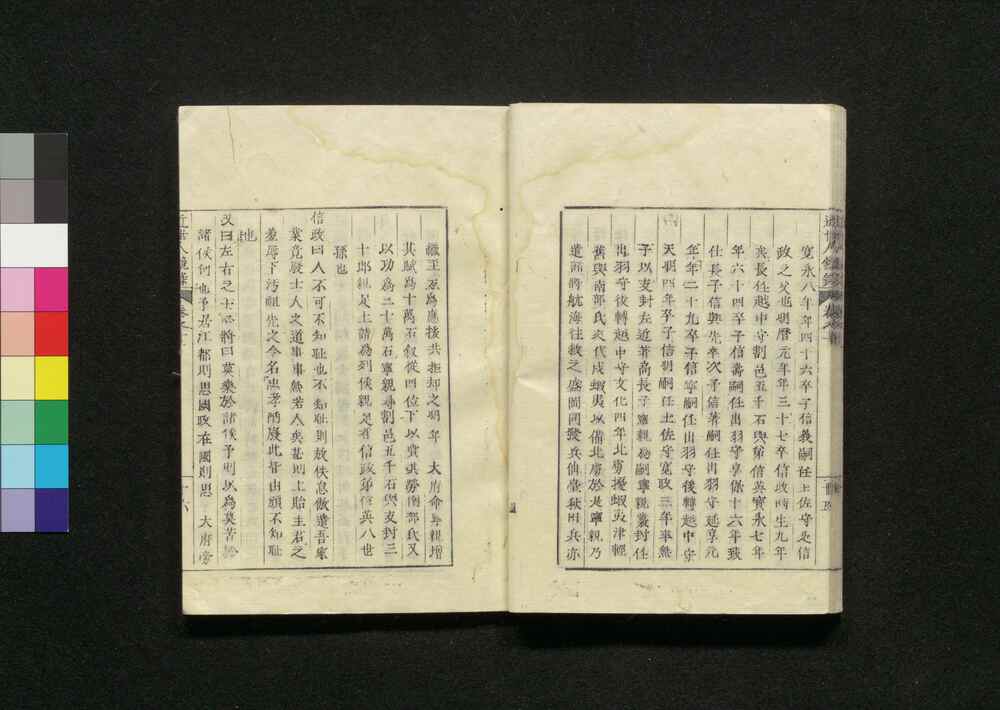 寛永八年年四十六卒子信義嗣任土佐守是信
政之父也明暦元年年三十七卒信政時生九年
矣長任越中守割邑五千石與弟信英寳永七年
年六十四卒子信壽嗣任出羽守享保十六年致
仕長子信興先卒次子信著嗣任出羽守延享元
年年二十九卒子信寧嗣任出羽守後轉越中守
天明四年卒子信明嗣任土佐守寛政三年卒無
子以支封左近著高長子寧親為嗣寧親襲封任
出羽守後轉越中守文化四年北虜擾蝦夷津輕
舊與南部氏交代戍蝦夷以備北虜於是寧親乃
遣兵將航海往救之盛岡國發兵仙臺秋田兵亦
勤王互為應援共拒却之明年 大府命寧親増
其賦為十萬石叙從四位下以賞其勞南部氏又
以功為二十萬石寧親尋割邑五千石與支封三
十郎親足上請為列侯親足者信政弟信英八世
孫也
信政曰人不可不知耻也不知耻則放佚怠傲棄吾家
業克廢士人之道事事無若人矣甚則上貽主君之
羞辱下汚祖先之令名忠孝陷廢此皆由頑不知耻
也
又曰左右之士 將曰莫樂於諸侯予則以為莫苦於
諸侯何也予居江都則思國政在國則思 大府旁
近世人鏡録
十六